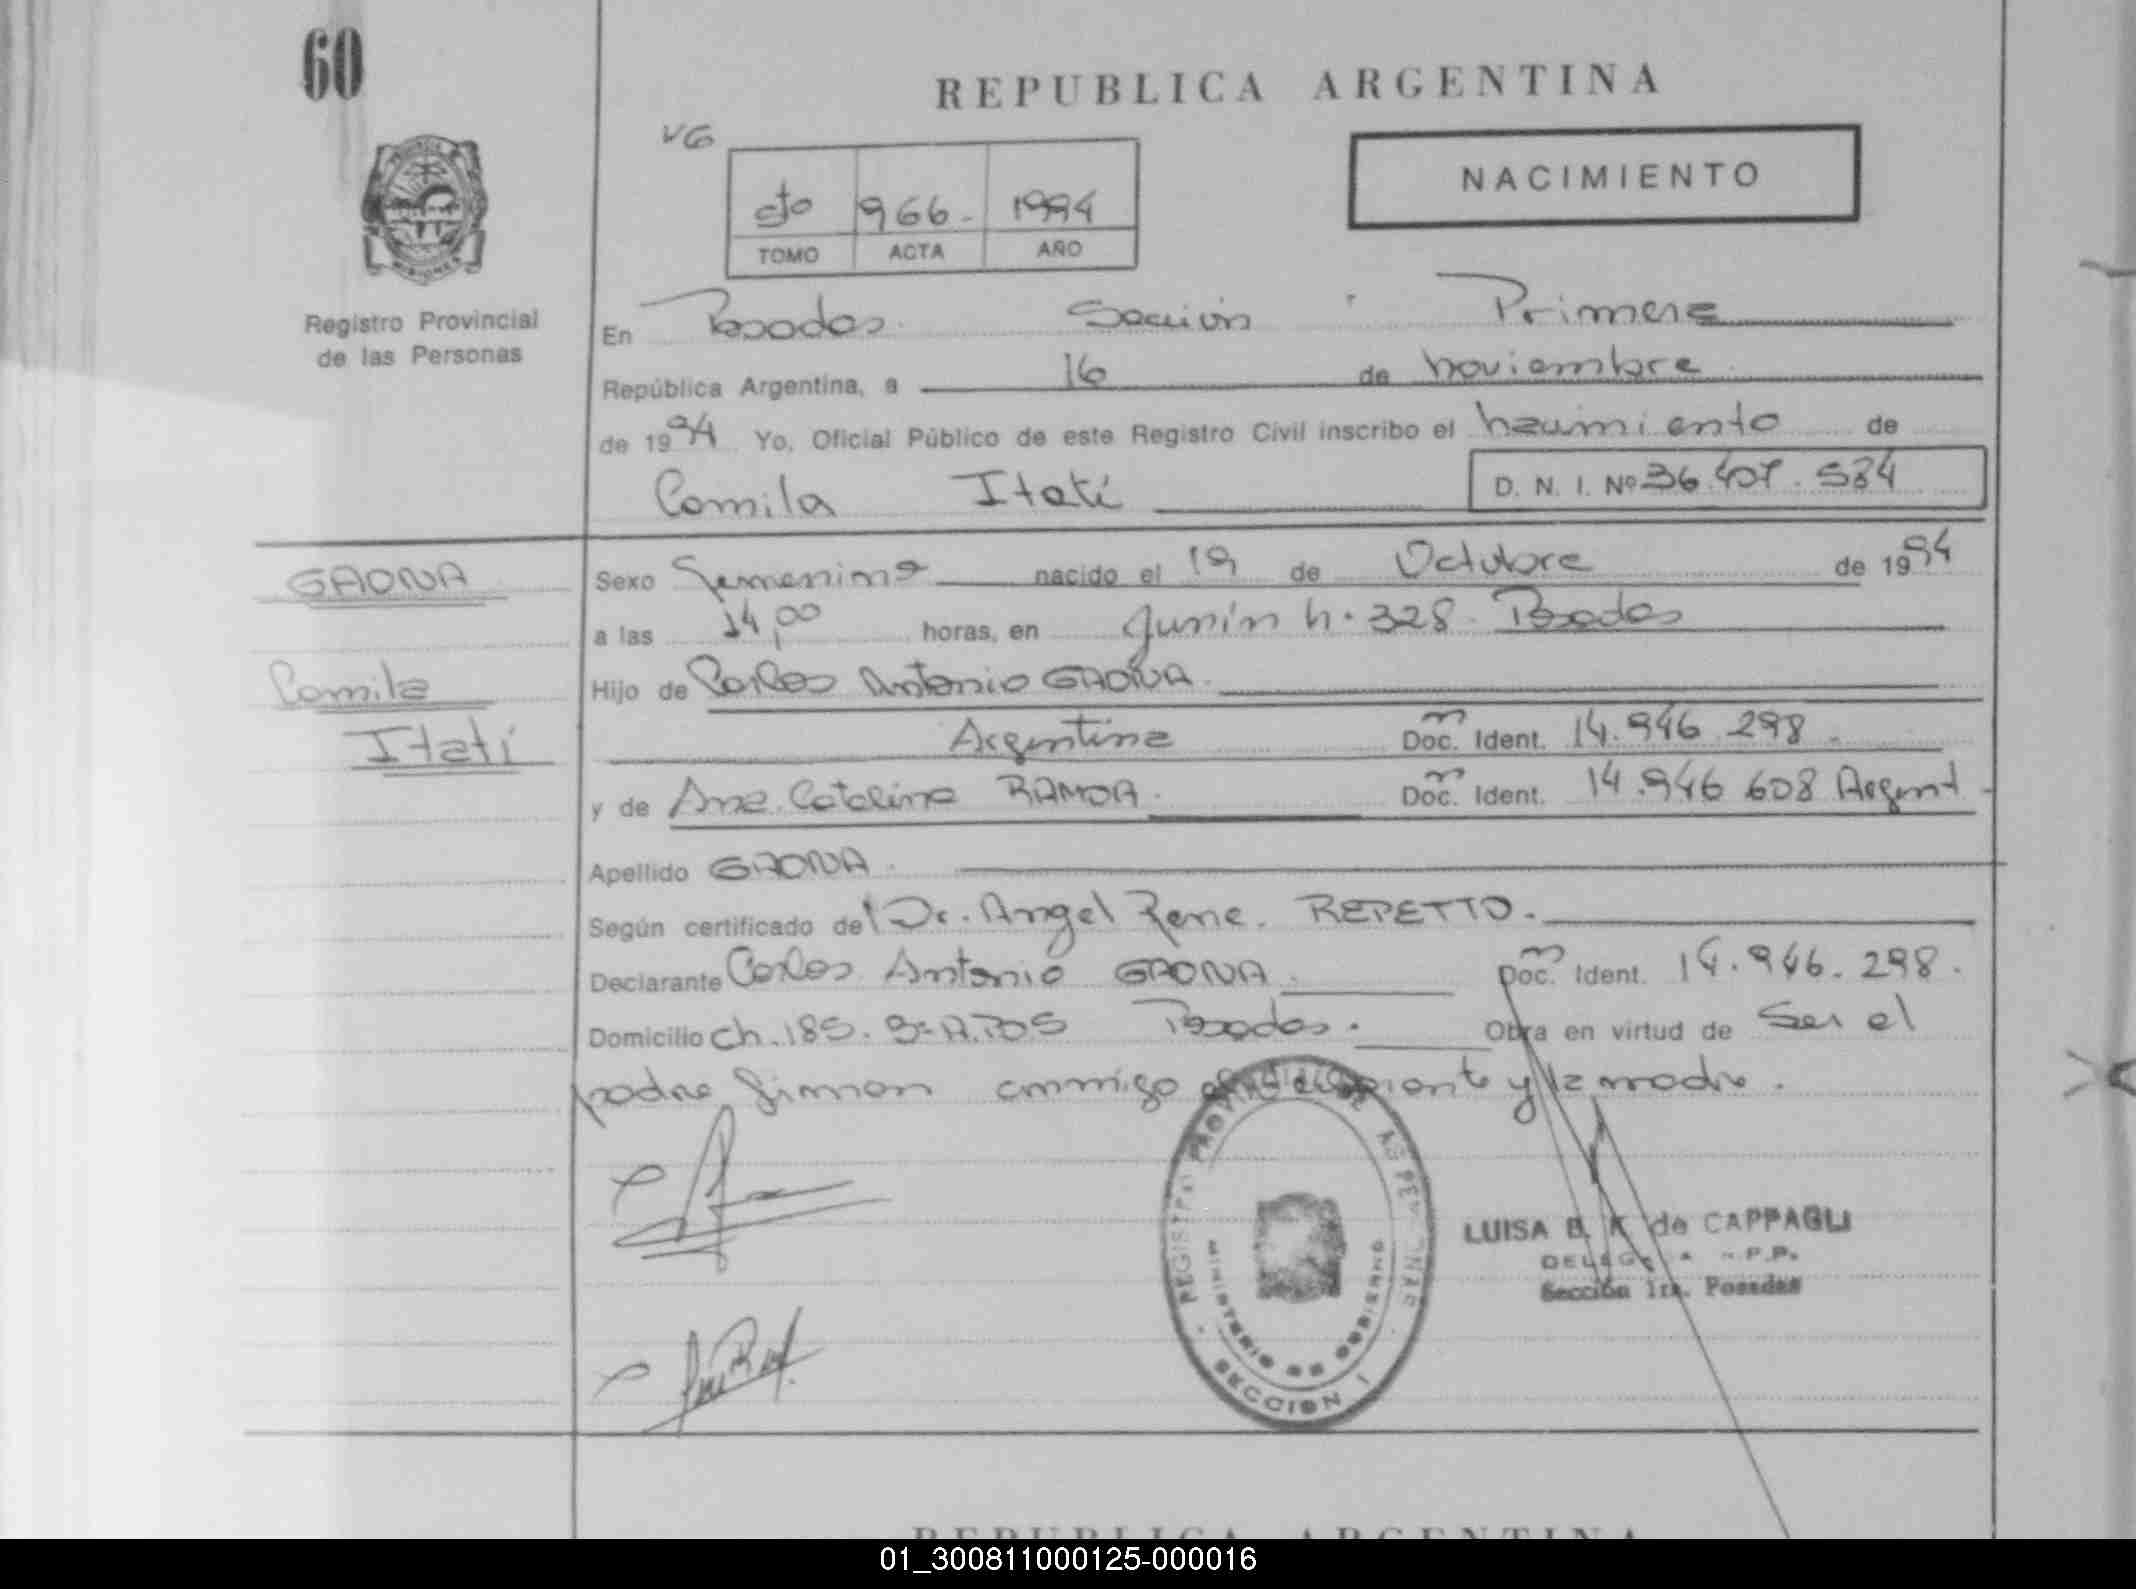 60
REPUBLICA ARGENTINA
VG
NACIMIENTO
cto 966- 1994
TOMO ACTA AÑO
Registro Provincial
de las Personas
En Posadas Sección Primera
República Argentina, a 16 de noviembre
de 1994 Yo, Oficial Público de este Registro Civil inscribo el nacimiento de
Camila Itatí D. N. I. Nº 36.407.584
GAONA
Camila
Itatí
Sexo femenino nacido el 19 de Octubre de 1994
a las 14,00 horas, en Junín n. 328. Posadas
Hijo de Carlos Antonio GAONA
Argentina Doc. Ident. 14.946.298.
y de Ana Catalina RAMOA. Doc. Ident. 14.946 608 Argent
Apellido GAONA.
Según certificado del Dr. Angel Rene. REPETTO.
Declarante Carlos Antonio GAONA. Doc. Ident. 14.946.298.
Domicilio ch. 185. Posadas. Obra en virtud de Ser el
padre firman conmigo el declarante y la madre.
REGISTRO PROVINCIAL DE LAS PERSONAS
MINISTERIO DE GOBIERNO
SECCION 1
LUISA B. K de CAPPAGLI
DELEGADA R.P.P.
Sección 1ra. Posadas
REPUBLICA ARGENTINA
01_300811000125-000016